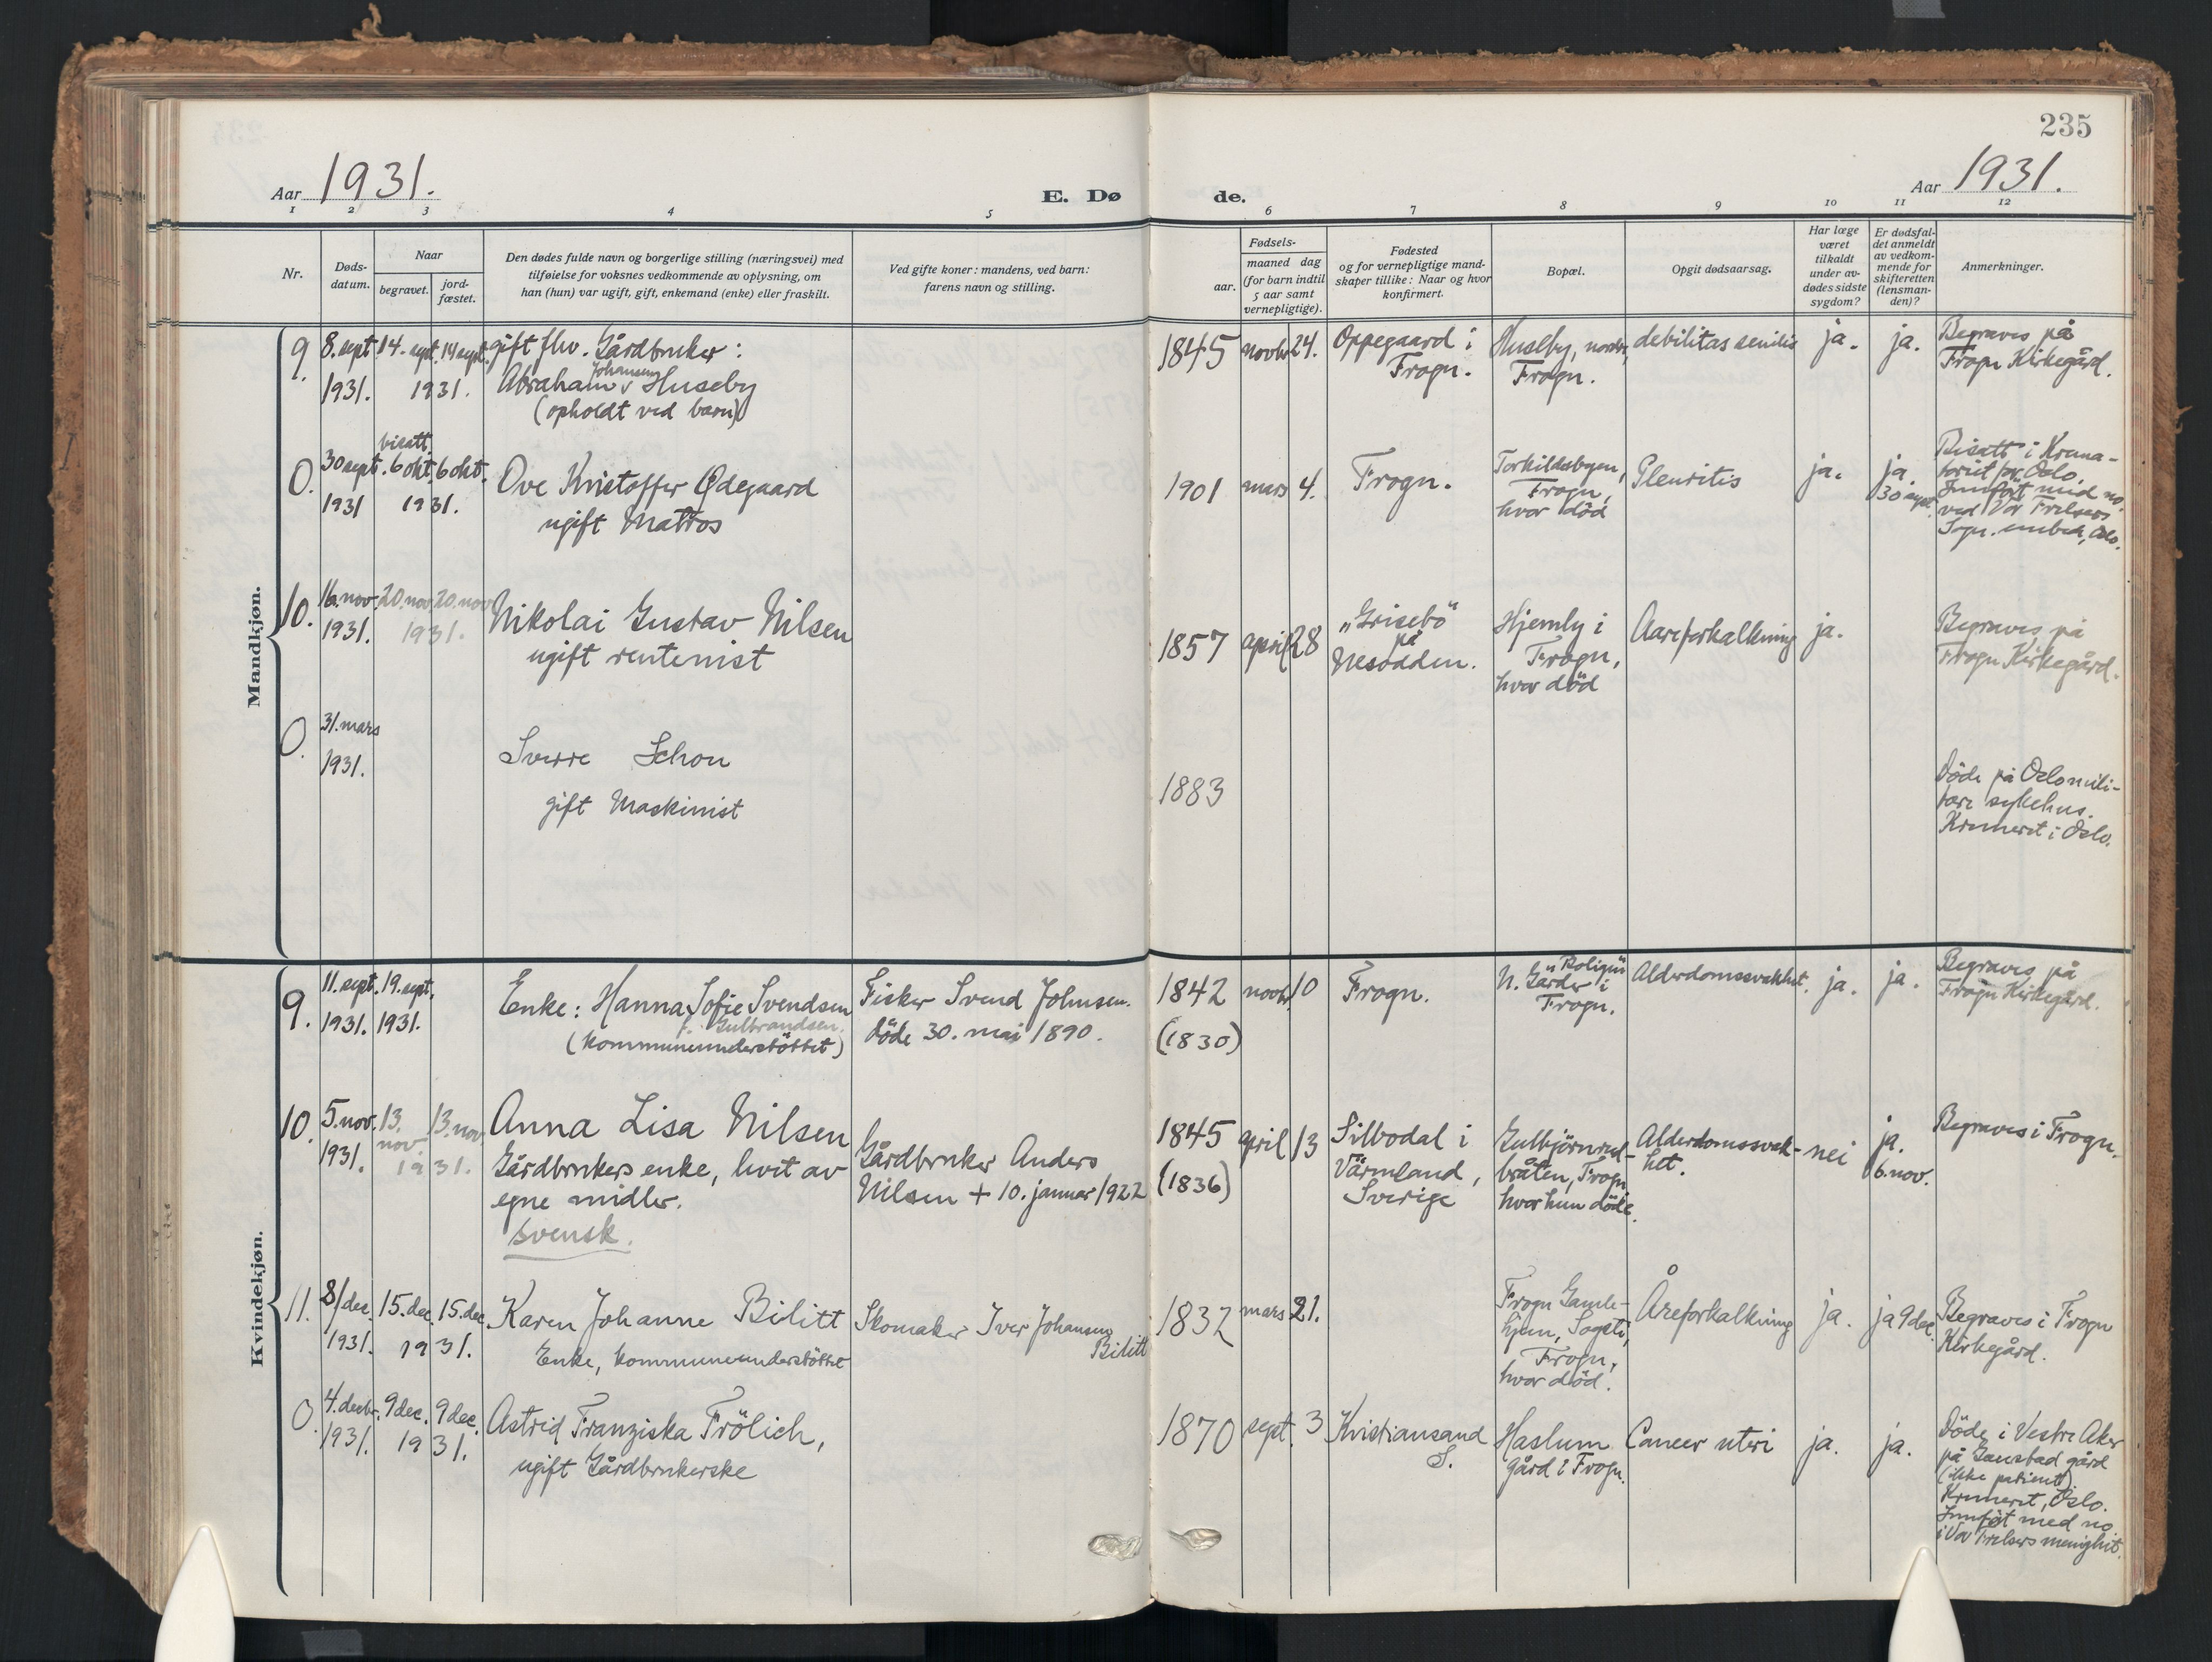 235
Aar 1931.
E. Dø
de.
Aar 1931.
1 2 3 4 5 6 7 8 9 10 11 12
Nr.
Døds-
datum.
Naar
begravet.
jord-
fæstet.
Den dødes fulde navn og borgerlige stilling (næringsvei) med
tilføielse for voksnes vedkommende av oplysning, om
han (hun) var ugift, gift, enkemand (enke) eller fraskilt.
Ved gifte koner: mandens, ved barn:
farens navn og stilling.
Fødsels-
aar.
maaned dag
(for barn indtil
5 aar samt
vernepligtige).
Fødested
og for vernepligtige mand-
skaper tillike: Naar og hvor
konfirmert.
Bopæl.
Opgit dødsaarsag.
Har læge
været
tilkaldt
under av-
dødes sidste
sygdom?
Er dødsfal-
det anmeldt
av vedkom-
mende for
skifteretten
(lensman-
den)?
Anmerkninger.
Mandkjøn.
9.
8. sept
1931.
14. sept. 14 sept.
1931.
gift fhv. Gårdbruker:
Johansen
Abraham v Huseby
(opholdt ved barn)
1845 novbr 24.
Oppegaard i
Frogn.
Huseby, nordre,
Frogn.
debilitas senilis
ja.
ja.
Begraves på
Frogn Kirkegård.
0.
30 sept.
1931
bisatt.
6 okt. 6 okt.
1931.
Ove Kristoffer Ødegaard
ugift Matros
1901 mars 4.
Frogn.
Torkildsbyen,
Frogn,
hvor död
Pleuritis
ja.
ja
30 sept.
Bisatt i Krema-
toriet for Oslo.
Innført med no.
ved Vor Frelsers
Sogn. embede, Oslo.
10.
16. nov
1931.
20. nov 20. nov
1931.
Nikolai Gustav Nilsen
ugift rentenist
1857 april 28
"Grisebö"
på
Nesodden.
Hjemly i
Frogn,
hvor död
Aareforkalkning
ja.
Begraves på
Frogn Kirkegård.
0.
31. mars
1931.
Sverre Schou
gift Maskinist
1883
Döde på Oslo mili-
tære sykehus.
Kremeret i Oslo.
Kvindekjøn.
9.
11. sept.
1931.
19. sept.
1931.
Enke: Hanna Sofie Svendsen
f. Gulbrandsen.
(kommuneunderstöttet)
Fisker Svend Johnsen.
döde 30. mai 1890.
1842 novbr. 10
(1830)
Frogn.
"Boligen"
N. Garder i
Frogn.
Alderdomssvakhet.
ja.
ja.
Begraves på
Frogn Kirkegård.
10.
5. nov.
1931.
13.
nov
13. nov
1931.
Anna Lisa Nilsen
Gårdbrukers enke, levet av
egne midler.
svensk.
Gårdbruker Anders
Nilsen + 10. januar 1922
1845 april 13
(1836)
Silbodal i
Värmland,
Sverige
Gulbjörnrud-
bråten, Frogn
hvor hun döde.
Alderdomssvak-
het.
nei
ja.
6. nov.
Begraves i Frogn.
11.
8/dec.
1931.
15. dec. 15. dec.
1931.
Karen Johanne Bilitt
Enke, kommuneunderstöttet
Skomaker Iver Johansen
Bilitt
1832 mars 21.
Frogn Gamle-
hjem, Sogsti,
Frogn,
hvor död.
Åreforkalkning
ja.
ja 9 dec.
Begraves i Frogn
Kirkegård.
0.
4. decbr.
1931.
9 dec. 9 dec.
1931.
Astrid Franziska Frölich,
ugift Gårdbrukerske
1870 sept. 3
Kristiansand
S.
Haslum
gård i Frogn.
Cancer uteri
ja.
ja.
Döde i Vestre Aker
på Gaustad gård
(ikke patient)
Kremeret, Oslo.
Innført med no
i Vor Frelsers menighet.